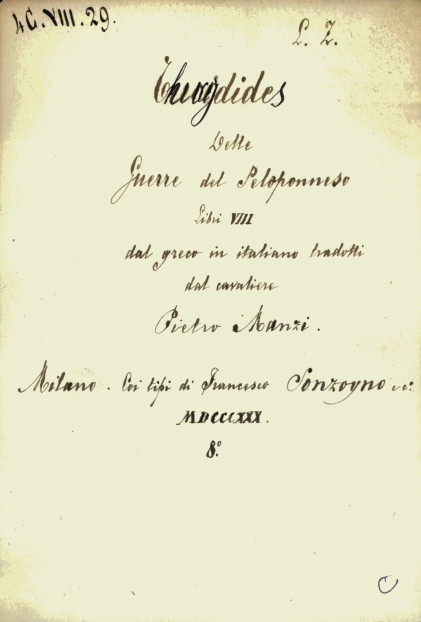 4C.VIII.29.
L. Z.
Thucydides
Delle
Guerre del Peloponneso
Libri VIII
dal greco in italiano tradotti
dal cavaliere
Pietro Manzi.
Milano. Coi tipi di Francesco Sonzogno
MDCCCXXX.
8.º